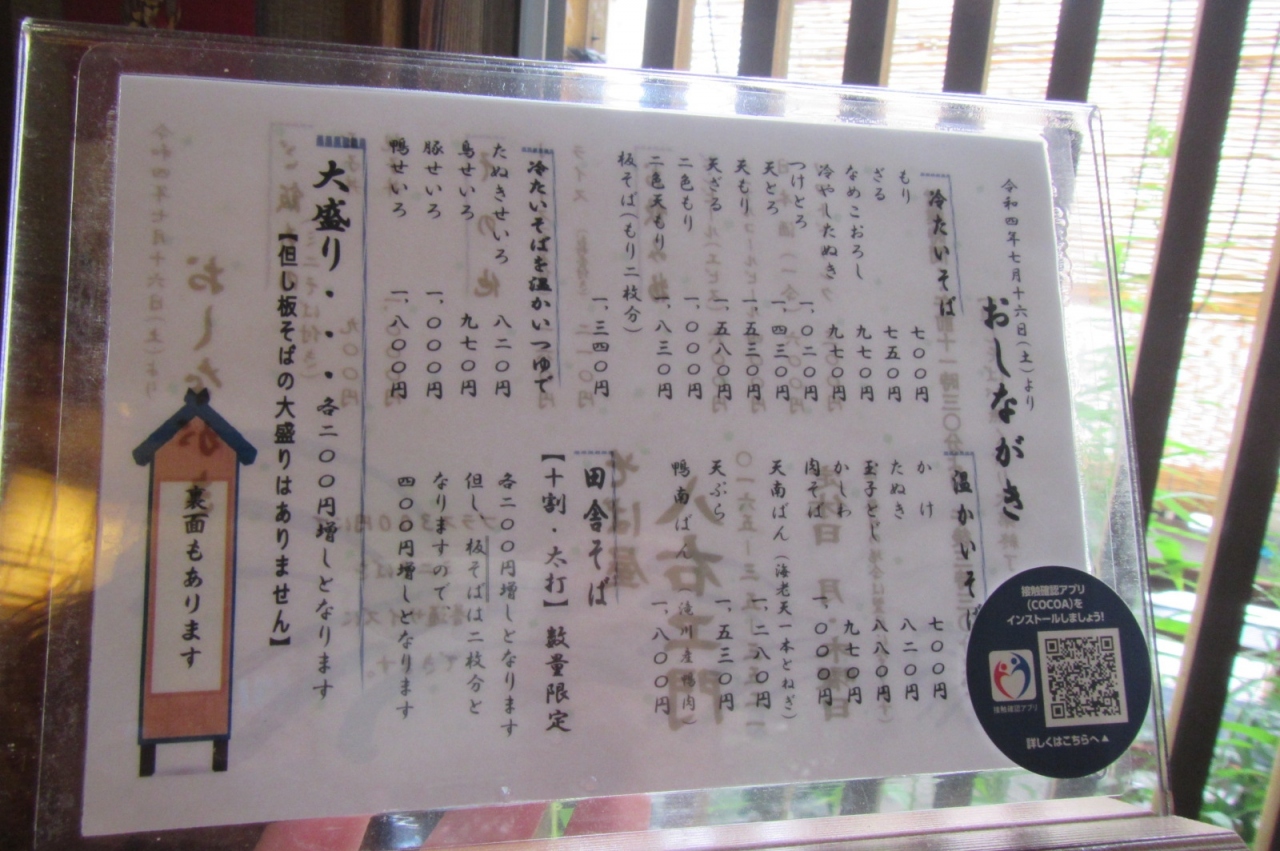 令和四年七月十六日(土)より
おしながき
冷たいそば
もり 七〇〇円
ざる 七五〇円
なめこおろし 九七〇円
冷やしたぬき 九七〇円
つけとろ 一、〇二〇円
天とろ 一、四三〇円
天もり 一、五三〇円
天ざる 一、五八〇円
二色もり 一、〇〇〇円
二色天もり 一、八三〇円
板そば(もり二枚分) 一、三四〇円
冷たいそばを温かいつゆで
たぬきせいろ 八二〇円
鳥せいろ 九七〇円
豚せいろ 一、〇〇〇円
鴨せいろ 一、八〇〇円
温かいそば
かけ 七〇〇円
たぬき 八二〇円
玉子とじ 八八〇円
かしわ 九七〇円
肉そば 一、〇〇〇円
天南ばん(海老天一本とねぎ) 一、二八〇円
天ぷら 一、五三〇円
鴨南ばん(滝川産鴨肉) 一、八〇〇円
田舎そば
【十割・太打】数量限定
各二〇〇円増しとなります
但し、板そばは二枚分と
なりますので
四〇〇円増しとなります
大盛り・・・各二〇〇円増しとなります
【但し板そばの大盛りはありません】
裏面もあります
接触確認アプリ
(COCOA)を
インストールしましょう!
接触確認アプリ
詳しくはこちらへ▲